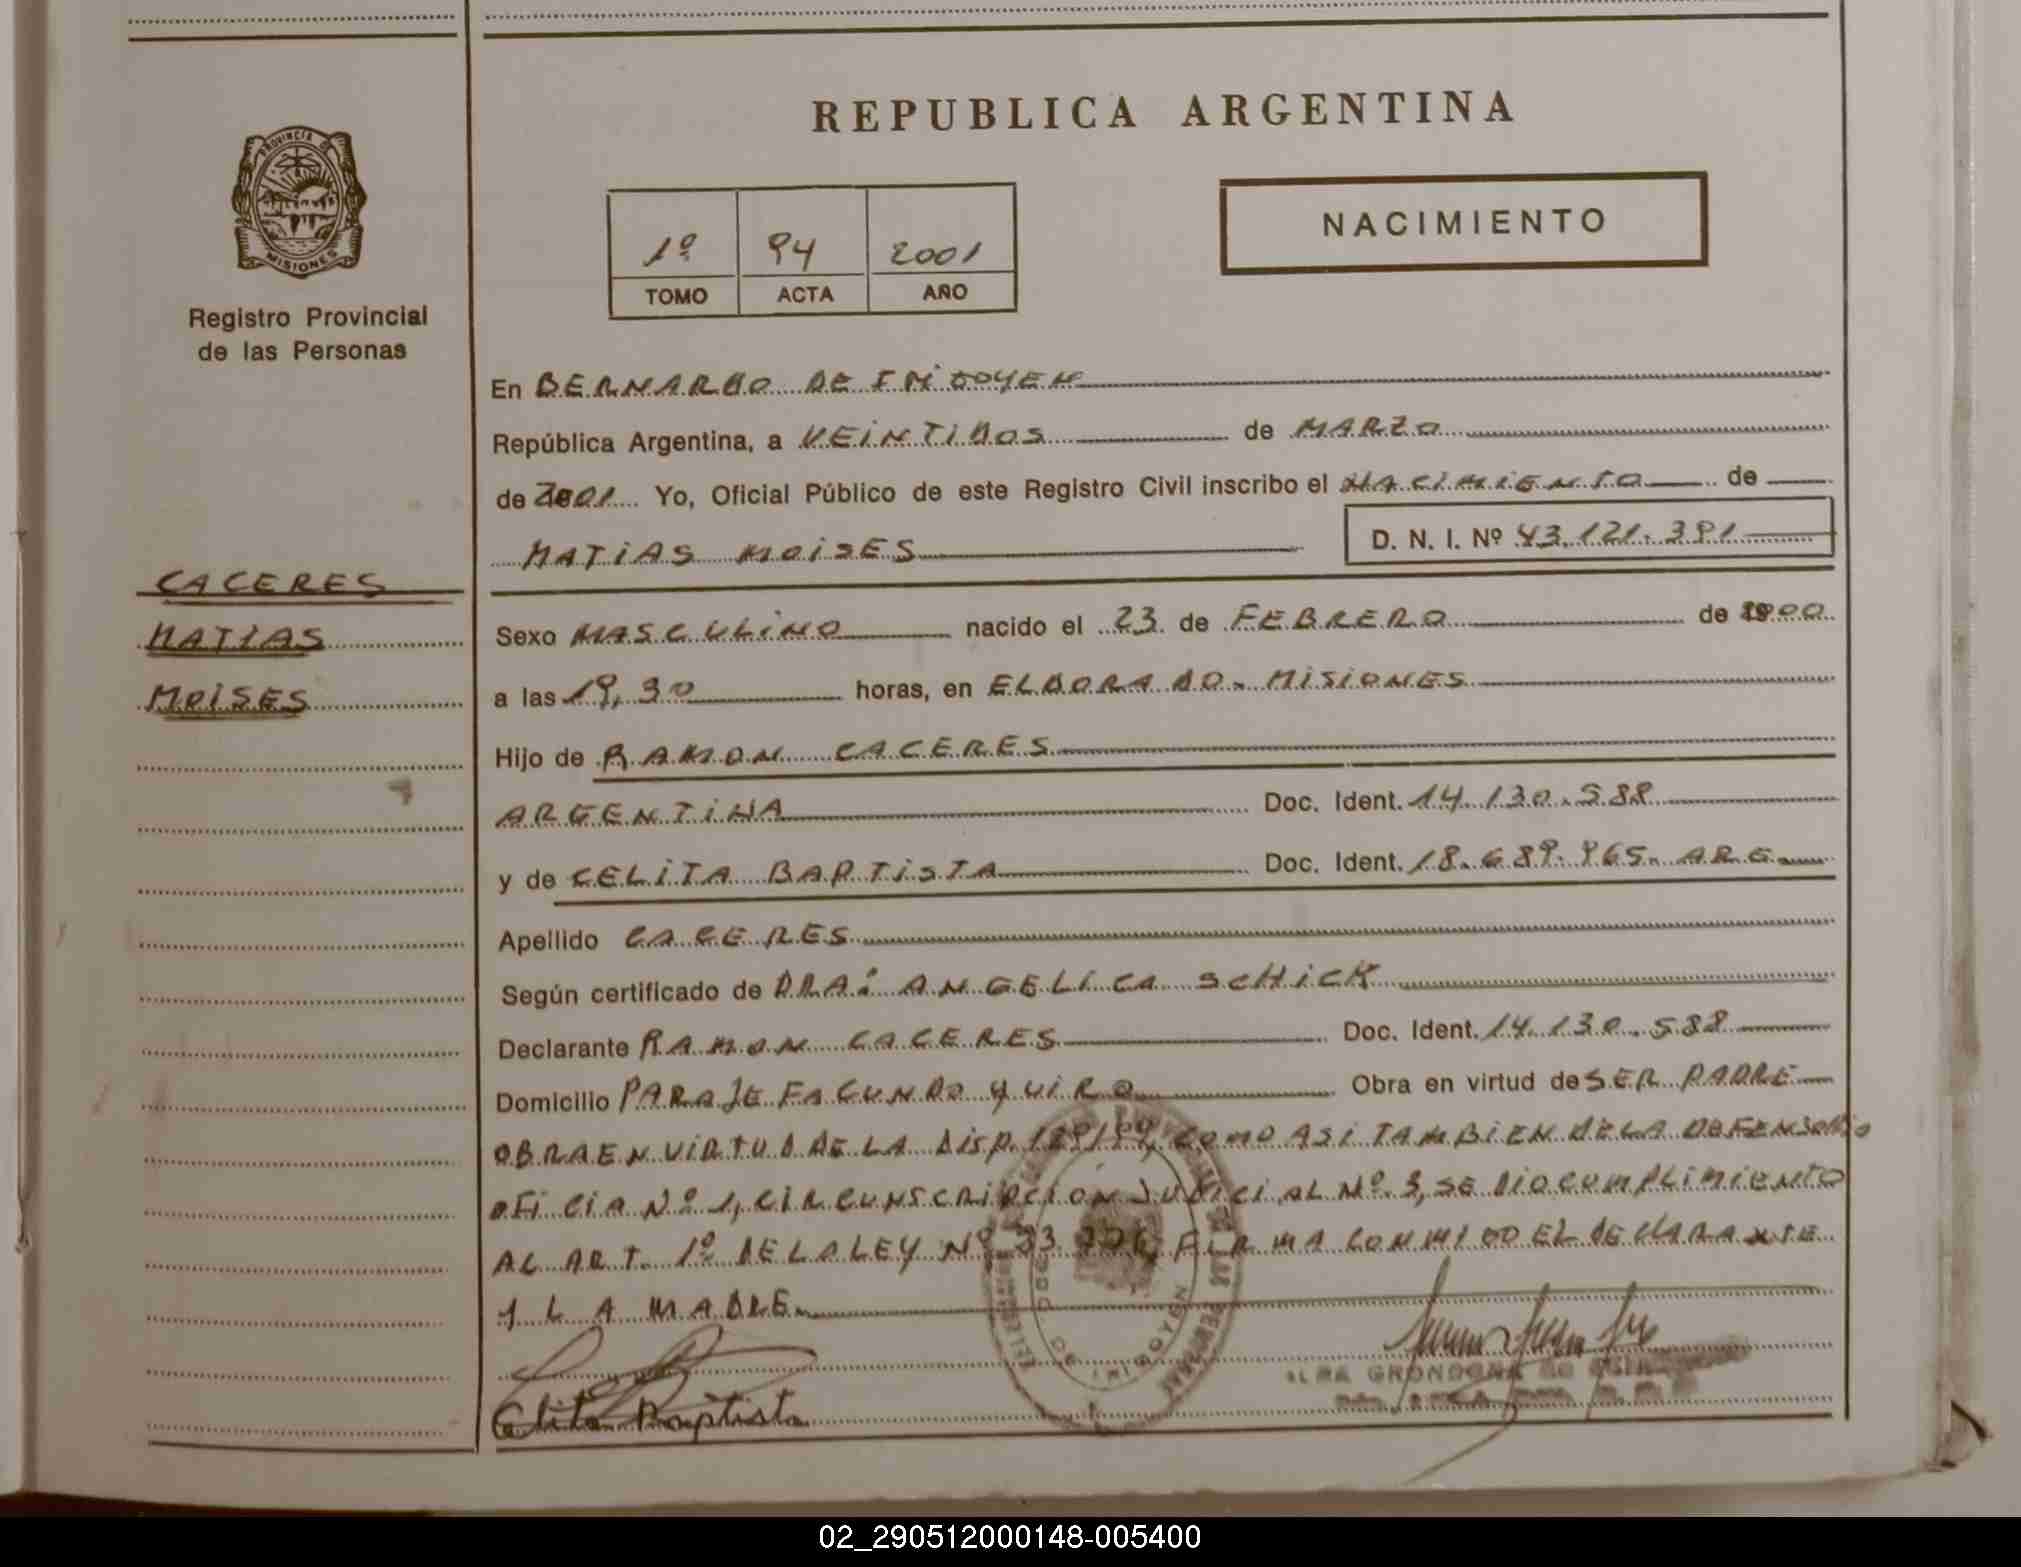 REPUBLICA ARGENTINA
PROVINCIA DE
MISIONES
Registro Provincial
de las Personas
1º 94 2001
TOMO ACTA AÑO
NACIMIENTO
En BERNARDO DE IRIGOYEN
República Argentina, a VEINTIDOS de MARZO
de 2001 Yo, Oficial Público de este Registro Civil inscribo el NACIMIENTO de
MATIAS MOISES D. N. I. Nº 43.121.391
CACERES
MATIAS
MOISES
Sexo MASCULINO nacido el 23 de FEBRERO de 2000
a las 19,30 horas, en ELDORADO - MISIONES
Hijo de RAMON CACERES
ARGENTINA Doc. Ident. 14.130.588
y de CELITA BAPTISTA Doc. Ident. 18.689.965- ARG.
Apellido CACERES
Según certificado de DRA: ANGELICA SCHICK
Declarante RAMON CACERES Doc. Ident. 14.130.588
Domicilio PARAJE FACUNDO QUIRO Obra en virtud de SER PADRE
OBRA EN VIRTUD DE LA DISP. COMO ASI TAMBIEN DE LA DEFENSORIA
OFICIA Nº 1, CIRCUNSCRIPCION JUDICIAL Nº 3, SE DIO CUMPLIMIENTO
AL ART. 1º DE LA LEY Nº FIRMA CONMIGO EL DECLARANTE
Y LA MADRE
IRIGOYEN
Celita Baptista
GRONDONA DE
02_290512000148-005400